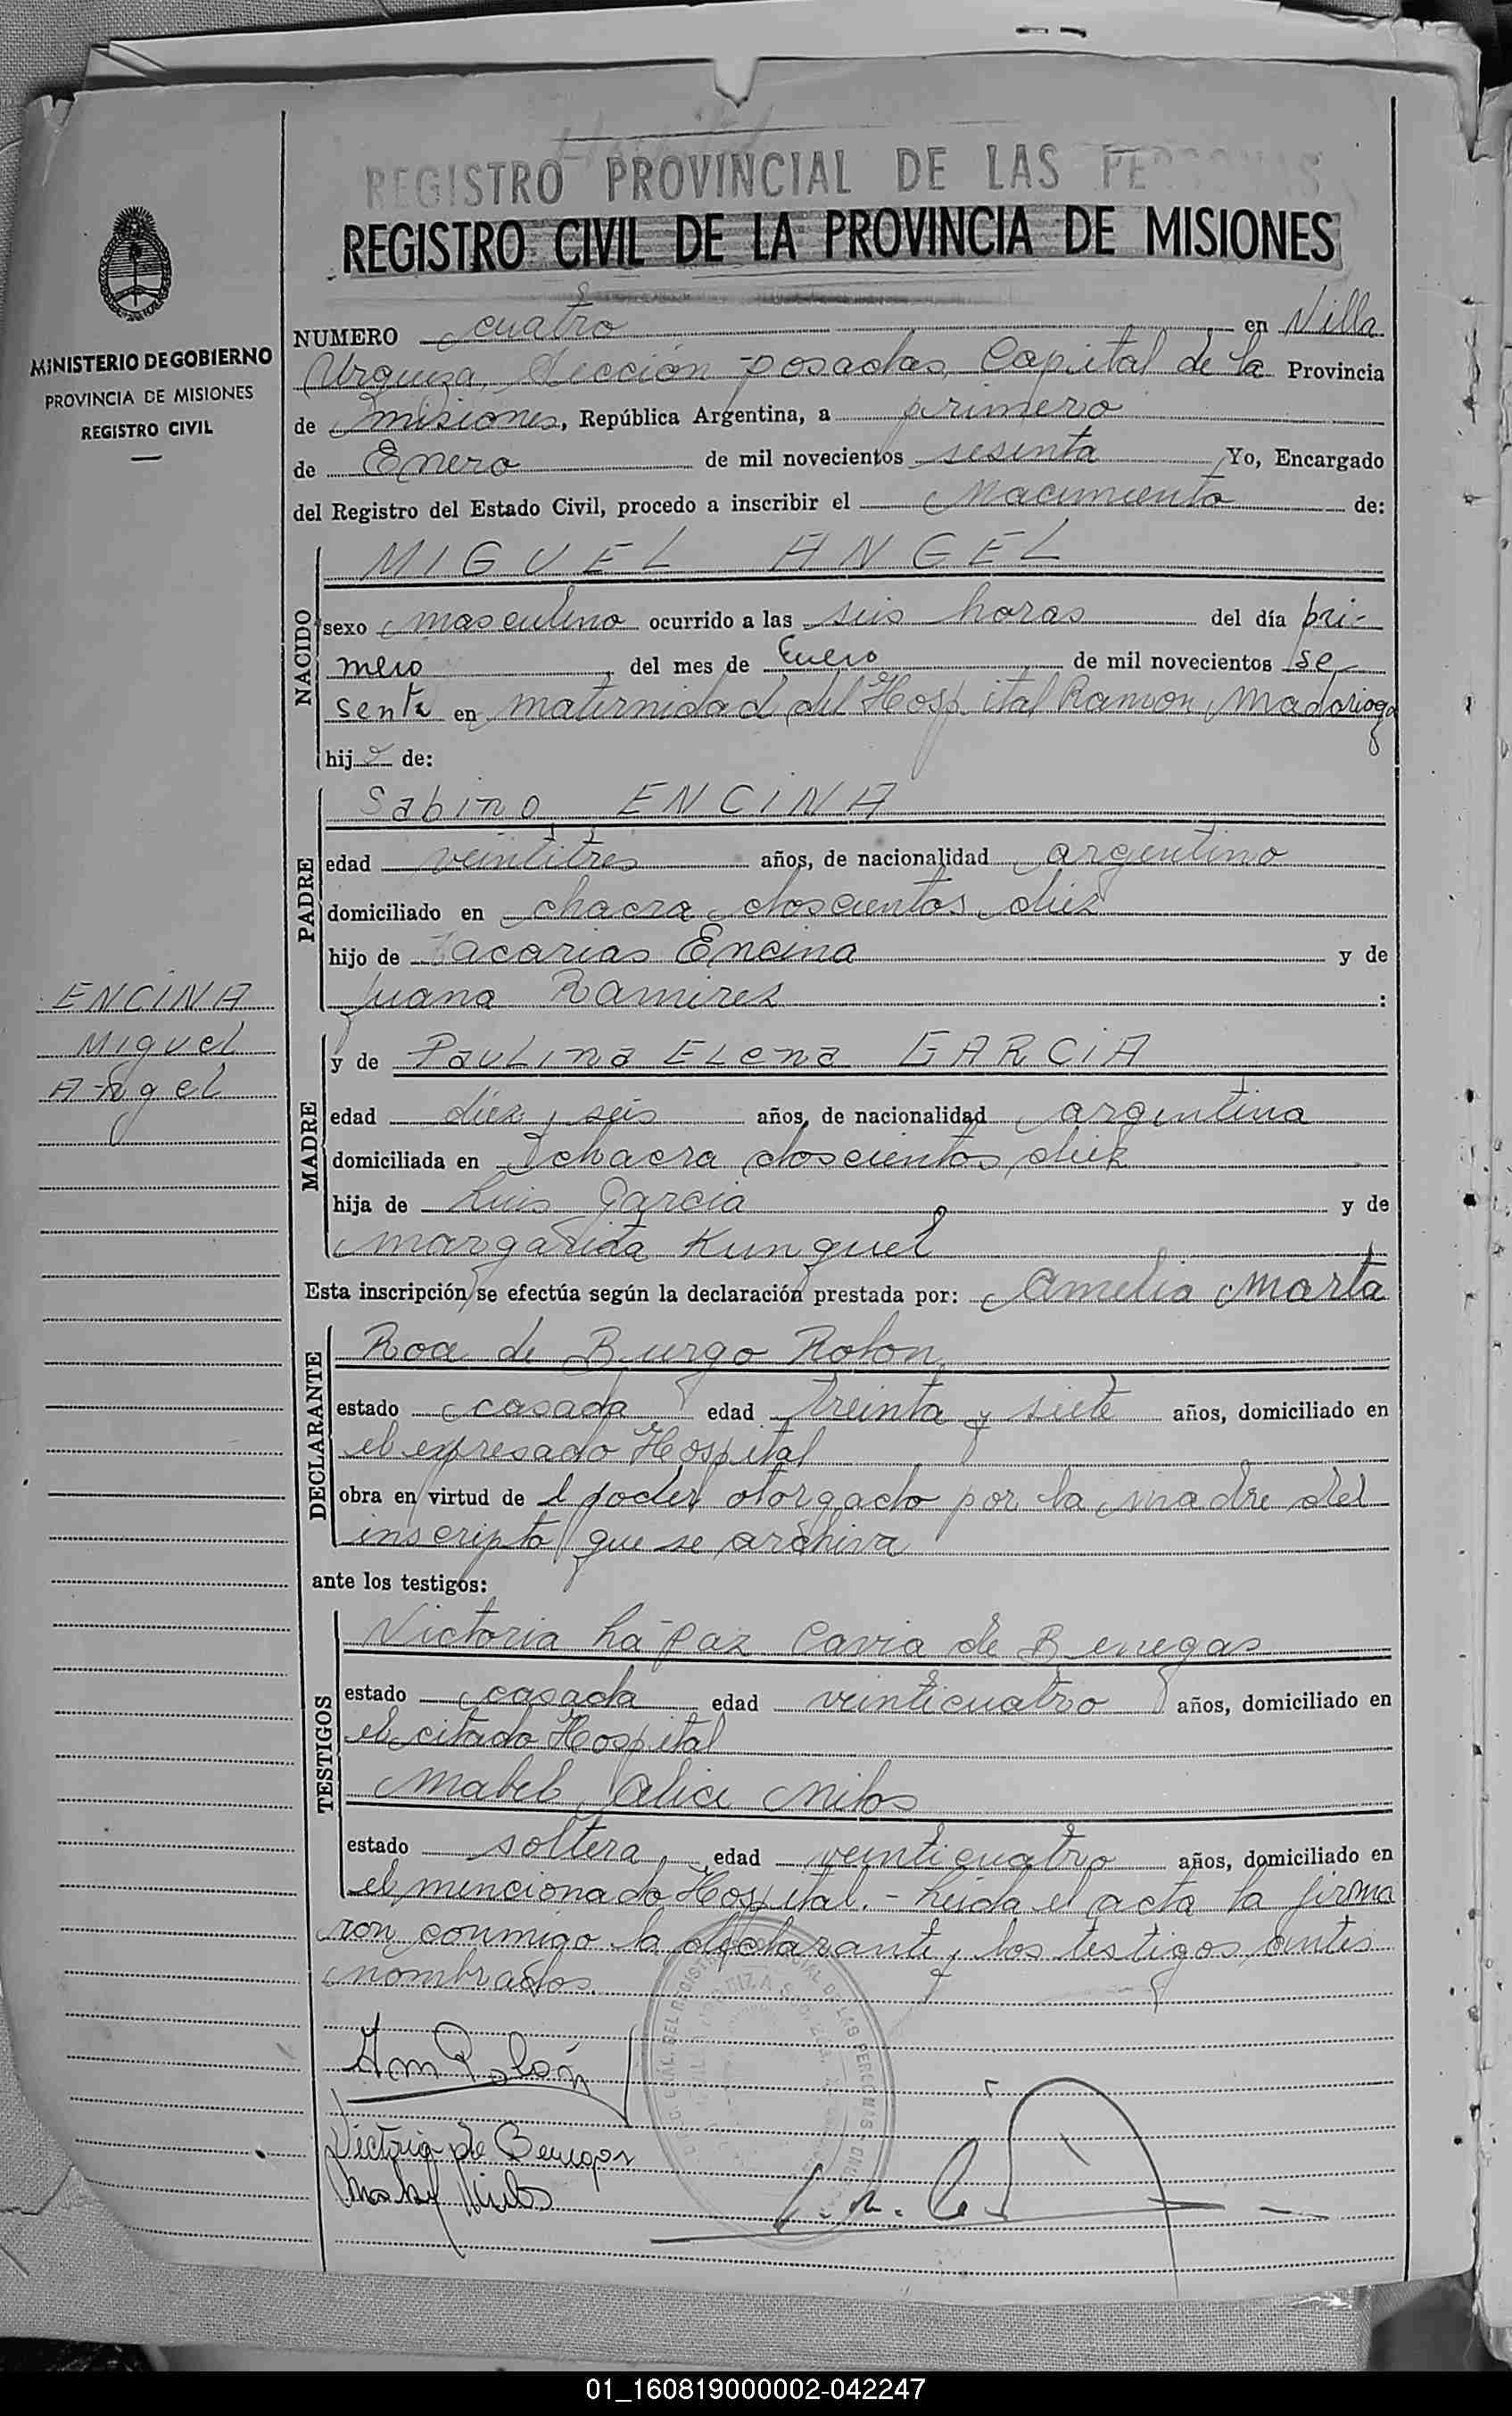 REGISTRO PROVINCIAL DE LAS PERSONAS
REGISTRO CIVIL DE LA PROVINCIA DE MISIONES
MINISTERIO DE GOBIERNO
PROVINCIA DE MISIONES
REGISTRO CIVIL
NUMERO cuatro en Villa
Urquiza, Sección posadas, Capital de la Provincia
de Misiones, República Argentina, a primero
de Enero de mil novecientos sesenta Yo, Encargado
del Registro del Estado Civil, procedo a inscribir el Nacimiento de:
NACIDO
MIGUEL ANGEL
sexo masculino ocurrido a las seis horas del día pri-
mero del mes de Enero de mil novecientos se
senta en maternidad del Hospital Ramon Madariaga
hijo de:
PADRE
Sabino ENCINA
edad veintitres años, de nacionalidad argentino
domiciliado en chacra doscientos diez
hijo de Zacarias Encina y de
Juana Ramirez :
ENCINA
Miguel
Angel
MADRE
y de Paulina Elena GARCIA
edad diez y seis años, de nacionalidad argentina
domiciliada en chacra doscientos diez
hija de Luis Garcia y de
Margarita Kunquel
Esta inscripción se efectúa según la declaración prestada por: Amelia Marta
DECLARANTE
Roa de Burgo Rolon
estado casada edad treinta y siete años, domiciliado en
el expresado Hospital
obra en virtud de l poder otorgado por la madre del
inscripto que se archiva
ante los testigos:
TESTIGOS
Victoria La paz Cavia de Benegas
estado casada edad veinticuatro años, domiciliado en
el citado Hospital
Mabel Alice Milos
estado soltera edad veinticuatro años, domiciliado en
el mencionado Hospital.- Leida el acta la firma
ron conmigo la declarante y los testigos antes
nombrados.
Am Rolón
Victoria de Benegas
Mabel Milos
01_160819000002-042247